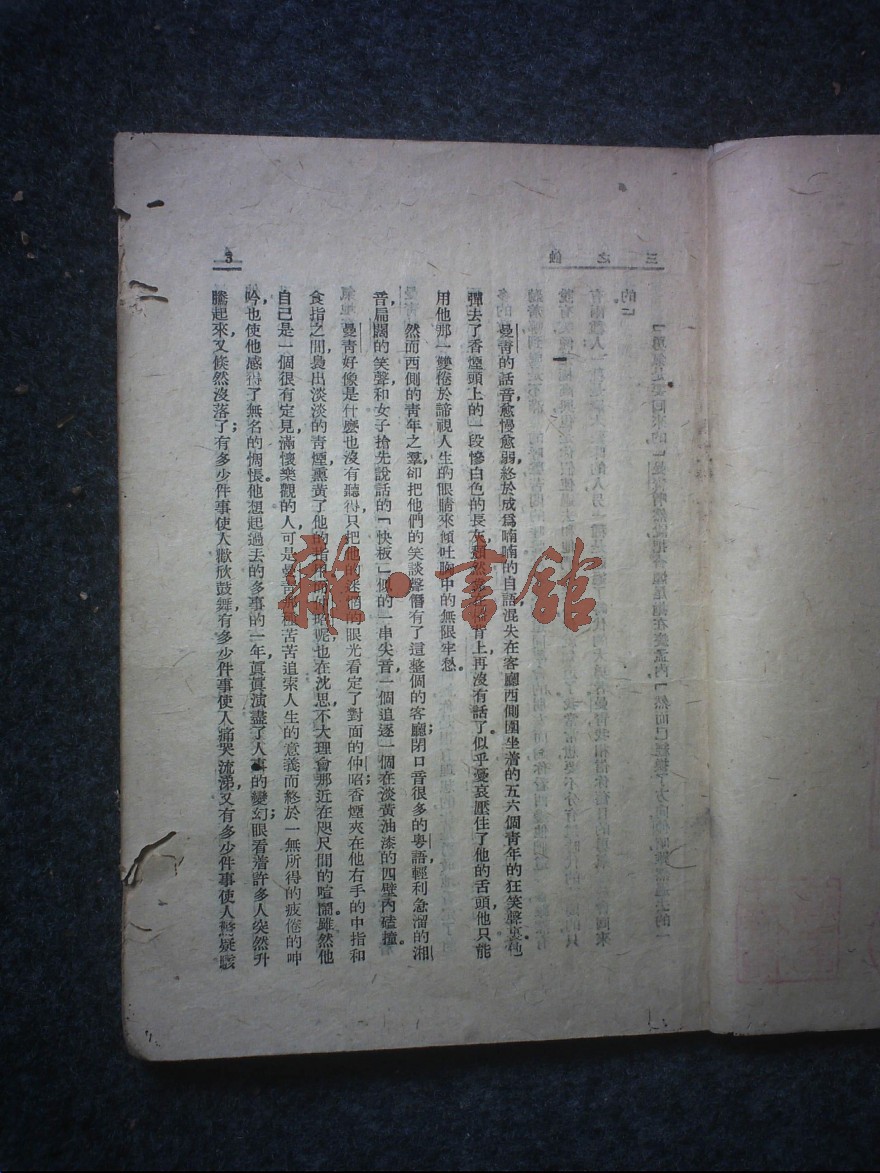 蝕之三
3
的」
曼靑的話音愈慢愈弱，終於成爲喃喃的自語，混失在客廳西側圍坐着的五六個靑年的狂笑聲裏。他
彈去了香煙頭上的一段慘白色的長灰，頹然落在椅背上，再沒有話了。似乎憂哀壓住了他的舌頭，他只能
用他那一雙倦於諦視人生的眼睛來傾吐胸中的無限牢愁。
然而西側的靑年之羣，卻把他們的笑談聲僭有了這整個的客廳；閉口音很多的粵語，輕利急溜的湘
音，扁闊的笑聲，和女子搶先說話的「快板」似的一串尖音，一個追逐一個，在淡黃油漆的四壁內磕撞。
曼靑好像是什麼也沒有聽得，只把他的迷惘的眼光看定了對面的仲昭。香煙夾在他右手的中指和
食指之間，裊出淡淡的靑煙，熏黃了他的指甲。仲昭呢，也在沈思，不大理會那近在咫尺間的喧鬧。雖然他
自己是一個很有定見，滿懷樂觀的人，可是曼靑那種苦苦追索人生的意義而終於一無所得的疲倦的呻
吟，也使他感得了無名的惆悵。他想起過去的多事的一年，眞眞演盡了人事的變幻；眼看着許多人突然升
騰起來，又倏然沒落了；有多少件事使人歡欣鼓舞，有多少件事使人痛哭流涕，又有多少件事使人驚疑駭
雜·書館